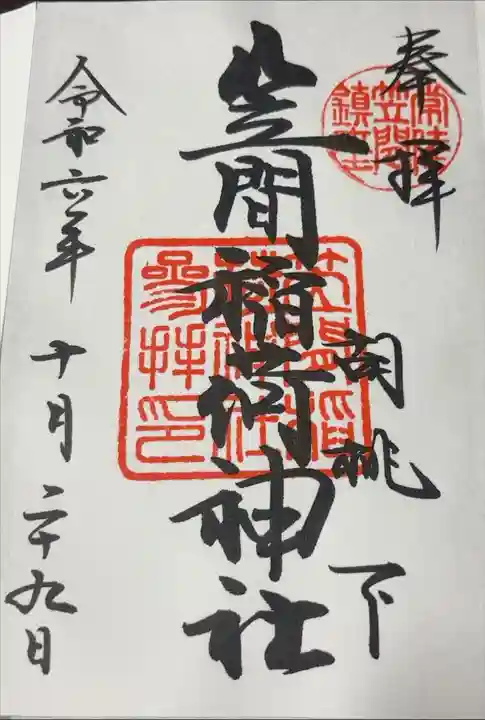 奉拝
常陸
笠間
鎮座
胡桃下
笠間稲荷神社
笠間稲
荷神社
參拝印
令和六年十月二十九日